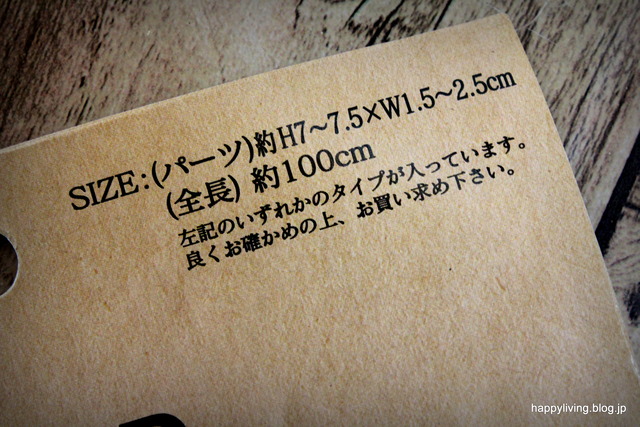 SIZE:(パーツ)約H7～7.5×W1.5～2.5cm
(全長) 約100cm
左記のいずれかのタイプが入っています。
良くお確かめの上、お買い求め下さい。
happyliving.blog.jp